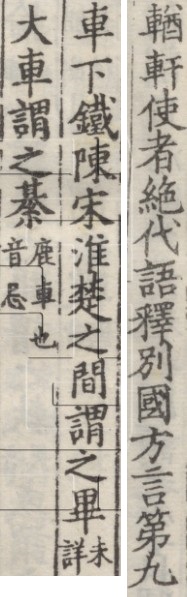 輶軒使者絶代語釋別國方言第九
車下鐵陳宋淮楚之間謂之畢未詳
大車謂之綦鹿車也音忌